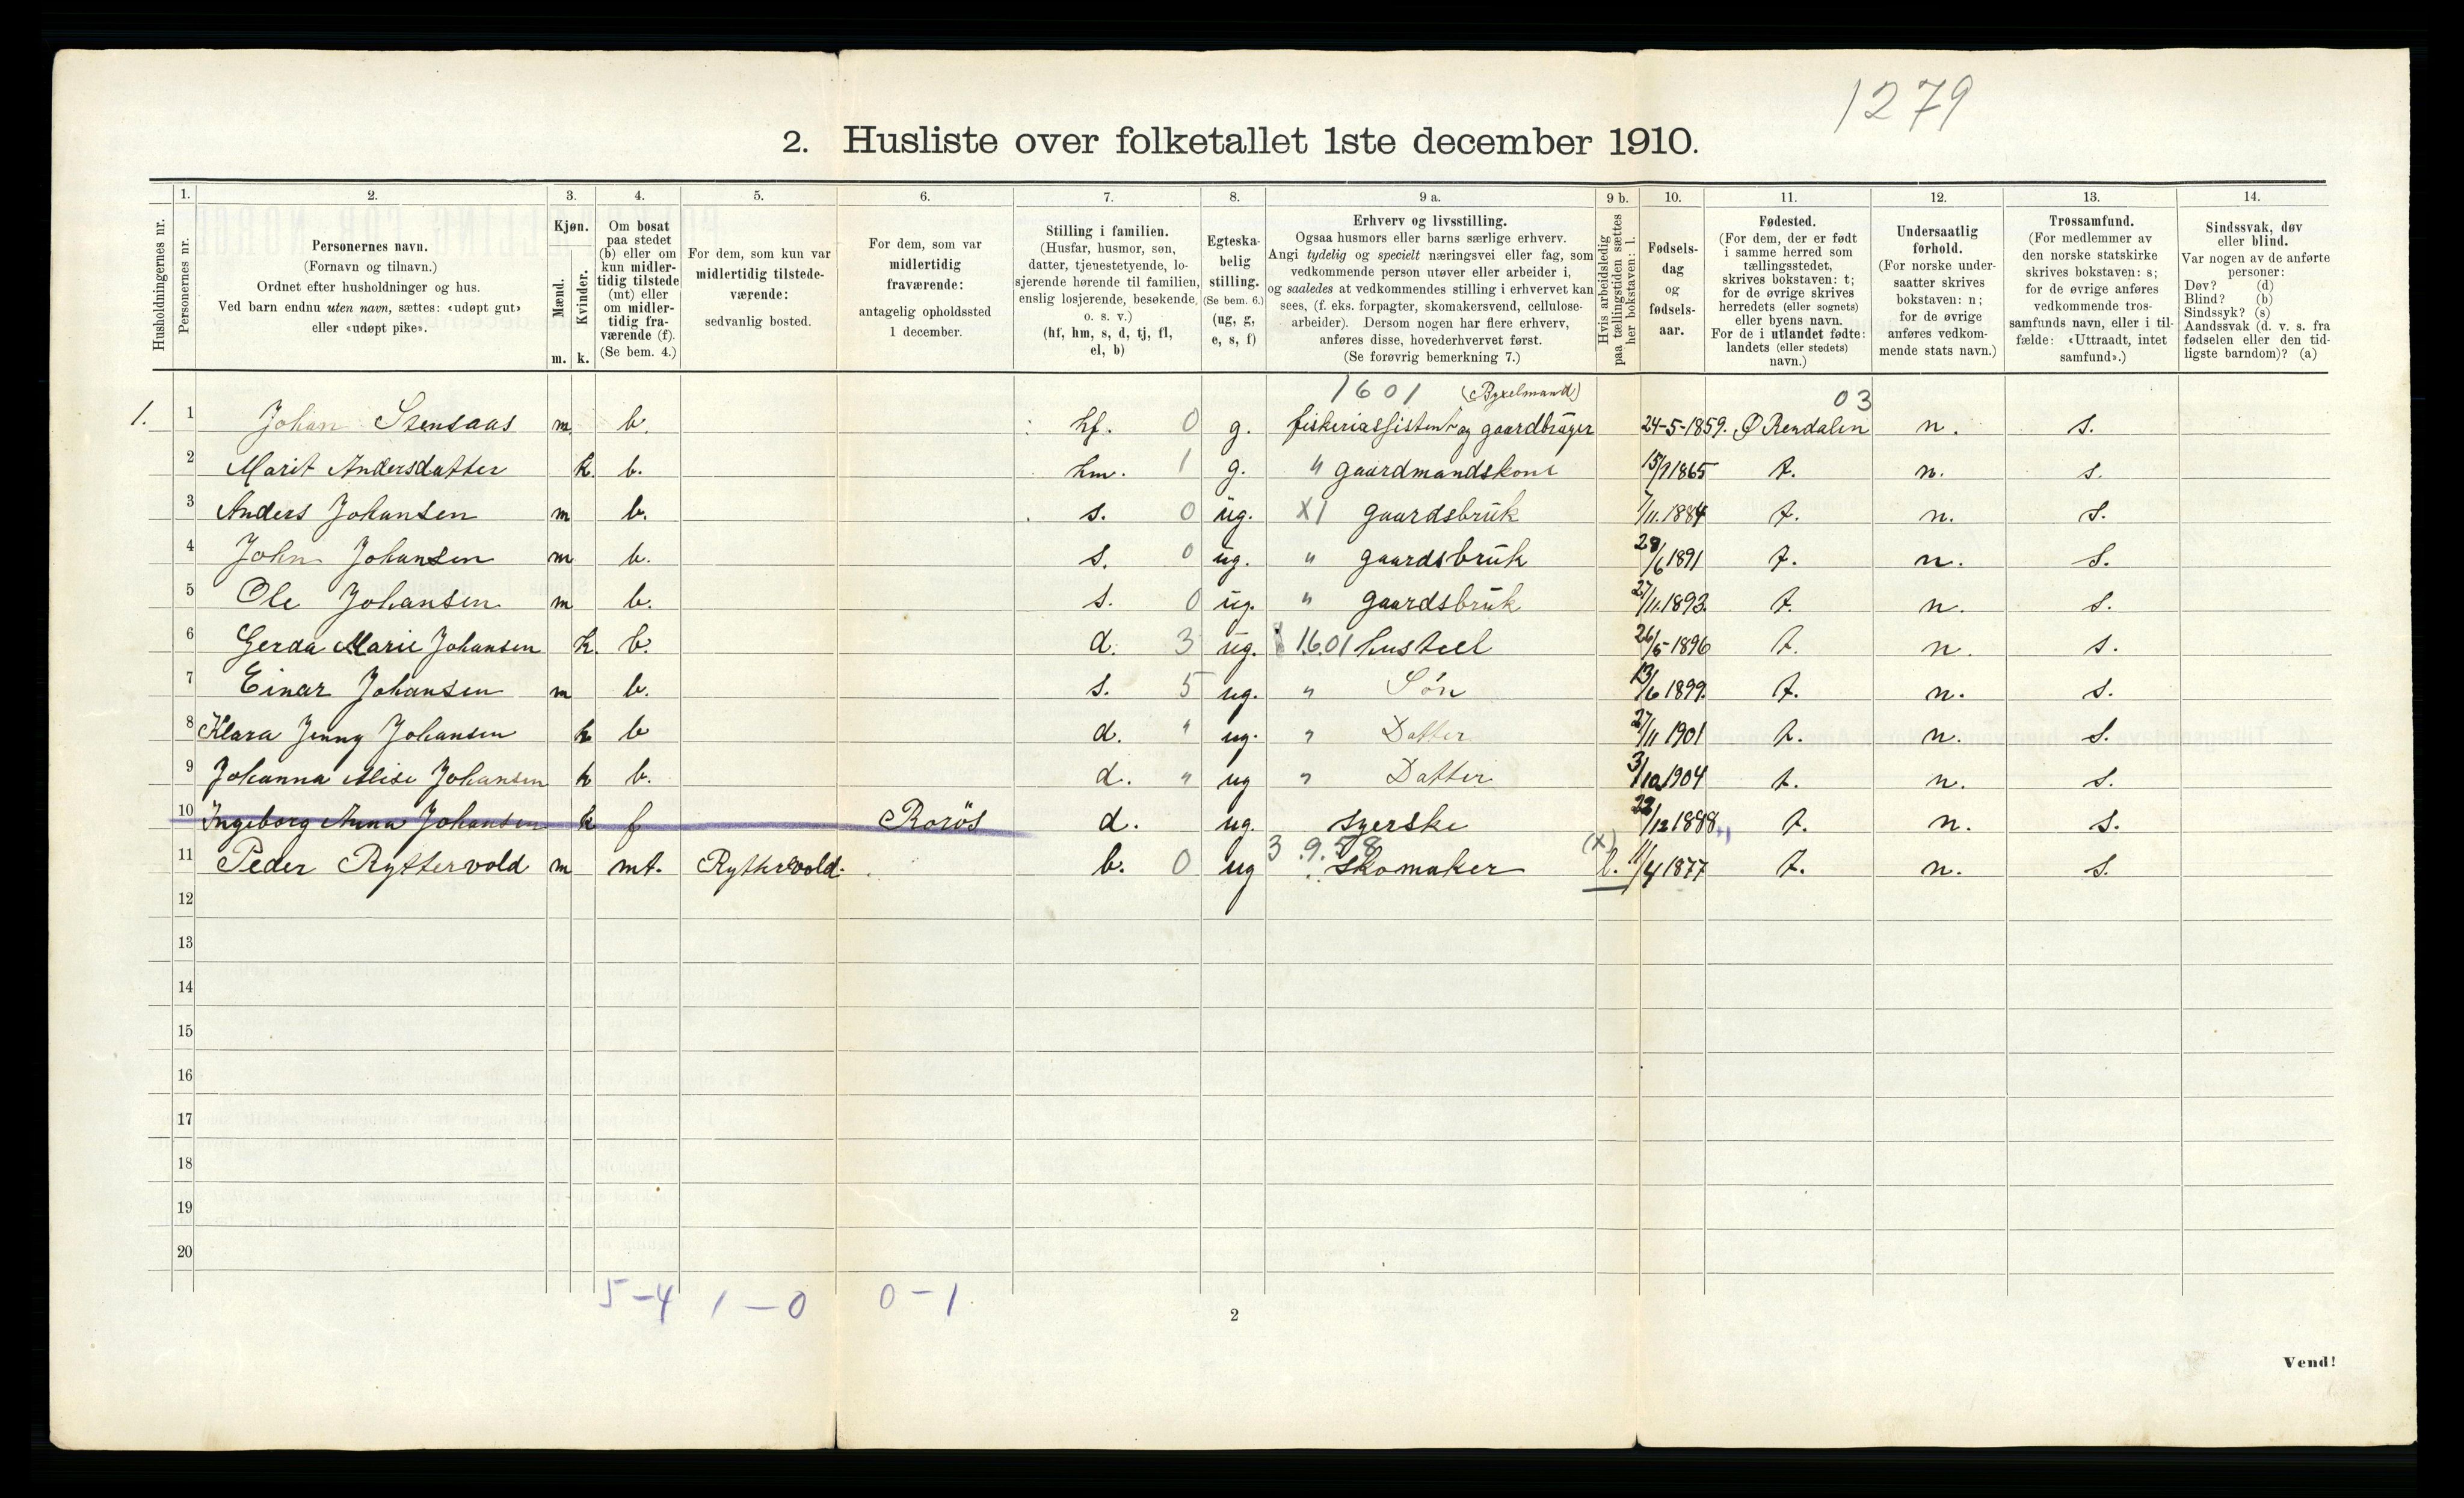 1279
2. Husliste over folketallet 1ste december 1910.
Husholdningernes nr.
1.
Personernes nr.
2.
Personernes navn.
(Fornavn og tilnavn.)
Ordnet efter husholdninger og hus.
Ved barn endnu uten navn, sættes: «udøpt gut»
eller «udøpt pike».
3.
Kjøn.
Mænd.
Kvinder.
m. k.
4.
Om bosat
paa stedet
(b) eller om
kun midler-
tidig tilstede
(mt) eller
om midler-
tidig fra-
værende (f).
(Se bem. 4.)
5.
For dem, som kun var
midlertidig tilstede-
værende:
sedvanlig bosted.
6.
For dem, som var
midlertidig
fraværende:
antagelig opholdssted
1 december.
7.
Stilling i familien.
(Husfar, husmor, søn,
datter, tjenestetyende, lo-
sjerende hørende til familien,
enslig losjerende, besøkende,
o. s. v.)
(hf, hm, s, d, tj, fl,
el, b)
8.
Egteska-
belig
stilling.
(Se bem. 6.)
(ug, g,
e, s, f)
9 a.
Erhverv og livsstilling.
Ogsaa husmors eller barns særlige erhverv.
Angi tydelig og specielt næringsvei eller fag, som
vedkommende person utøver eller arbeider i,
og saaledes at vedkommendes stilling i erhvervet kan
sees, (f. eks. forpagter, skomakersvend, cellulose-
arbeider). Dersom nogen har flere erhverv,
anføres disse, hovederhvervet først.
(Se forøvrig bemerkning 7.)
9 b.
Hvis arbeidsledig
paa tællingstiden sættes
her bokstaven: l.
10.
Fødsels-
dag
og
fødsels-
aar.
11.
Fødested.
(For dem, der er født
i samme herred som
tællingsstedet,
skrives bokstaven: t;
for de øvrige skrives
herredets (eller sognets)
eller byens navn.
For de i utlandet fødte:
landets (eller stedets)
navn.)
12.
Undersaatlig
forhold.
(For norske under-
saatter skrives
bokstaven: n;
for de øvrige
anføres vedkom-
mende stats navn.)
13.
Trossamfund.
(For medlemmer av
den norske statskirke
skrives bokstaven: s;
for de øvrige anføres
vedkommende tros-
samfunds navn, eller i til-
fælde: «Uttraadt, intet
samfund».)
14.
Sindssvak, døv
eller blind.
Var nogen av de anførte
personer:
Døv? (d)
Blind? (b)
Sindssyk? (s)
Aandssvak (d. v. s. fra
fødselen eller den tid-
ligste barndom)? (a)
1601 (Byxelmand) 03
1. 1 Johan Stensaas m. b. hf. 0 g. fiskeriassistent og gaardbrüger 24-5-1859. Ø Rendalen n. s.
2 Marit Andersdatter k. b. hm. 1 g. " gaardmandskone 15/9 1865 t. n. s.
3 Anders Johansen m b. s. 0 üg. X1 gaardsbrük 7/11.1884 t. n. s.
4 John Johansen m b. s. 0 üg. " gaardsbrük 28/6 1891 t. n. s.
5 Ole Johansen m b. s. 0 üg. " gaardsbrük 27/11.1893. t. n. s.
6 Gerda Marie Johansen k. b. d. 3 üg. 1601 husteel 26/5-1896 t. n. s.
7 Einar Johansen m b. s. 5 ug. " Søn 13/6 1899. t. n. s.
8 Klara Jenny Johansen k b d. " ug. " Datter 27/11 1901 t. n. s.
9 Johanna Alise Johansen k b. d. " ug " Datter 3/10 1904 t. n. s.
10 Ingeborg Anna Johansen k f Rorös d. ug. syerske 22/12 1888 t. n. s.
3 .9.58 (X)
11 Peder Ryttervold m mt. Ryttervold. b. 0 ug skomaker l. 11/4 1877 t. n. s.
12
13
14
15
16
17
18
19
20
5-4 1-0 0-1
2
Vend!